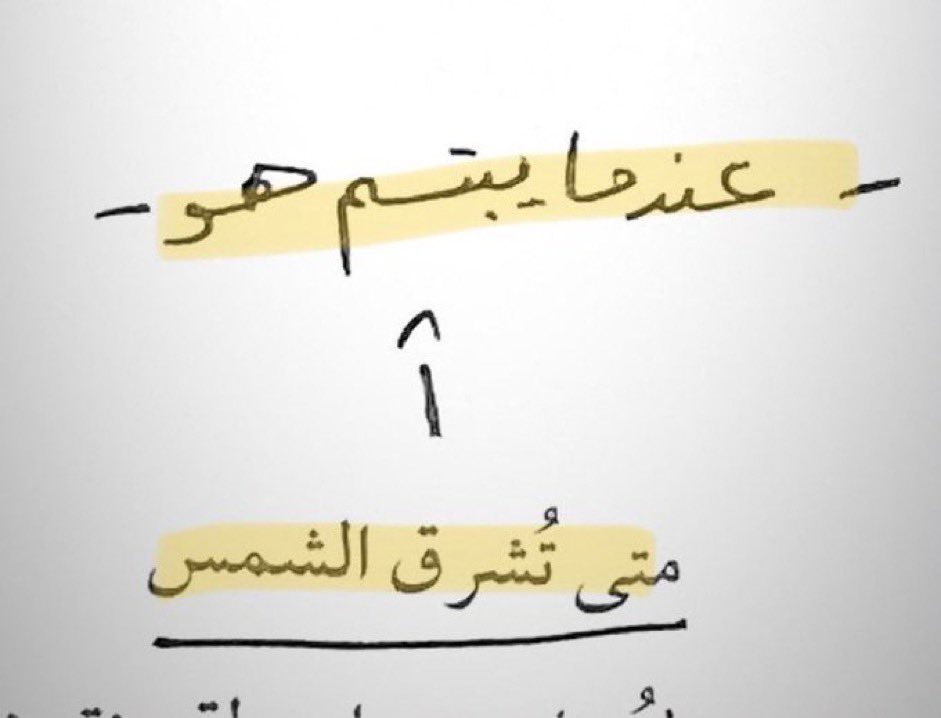 - عندما يبتسم هو -
متى تُشرق الشمس